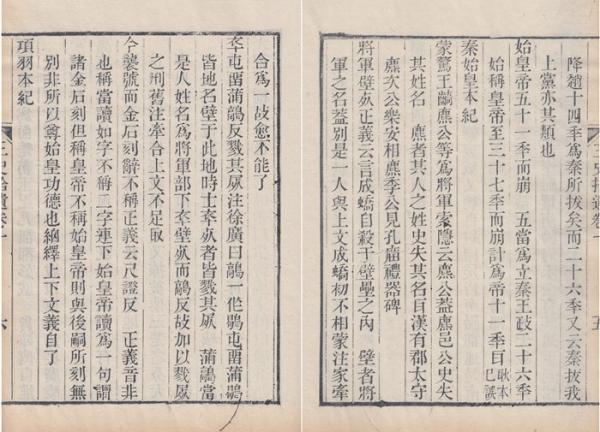 降趙十四秊爲秦所拔矣而二十六秊又云秦拔我
上黨亦其類也
始皇帝五十一秊而崩 五當爲立秦王政二十六秊
始稱皇帝至三十七秊而崩計爲帝十一秊耳耿本巳誤
秦始皇本紀
蒙驁王齮麃公等爲將軍索隱云麃公葢麃邑公史失
其姓名 麃者其人之姓史失其名耳漢有郡太守
麃次公樂安相麃季公見孔廟禮器碑
將軍壁死正義云言成蟜自殺于壁壘之內 壁者將
軍之名葢別是一人與上文成蟜初不相蒙注家牽
三史拾遺卷一 五
合爲一故愈不能了
卒屯畱蒲鶮反戮其屍注徐廣曰鶮一作鶡屯畱蒲鶮
皆地名壁于此地時士卒死者皆戮其屍 蒲鶮當
是人姓名爲將軍部下卒壁死而鶮反故加以戮屍
之刑舊注牽合上文不足取
今襲號而金石刻辭不稱正義云尺證反 正義音非
也稱當讀如字不稱二字連下始皇帝讀爲一句謂
諸金石刻但稱皇帝不稱始皇帝則與後嗣所刻無
別非所以尊始皇功德也紬繹上下文義自了
項羽本紀
三史拾遺卷一 六